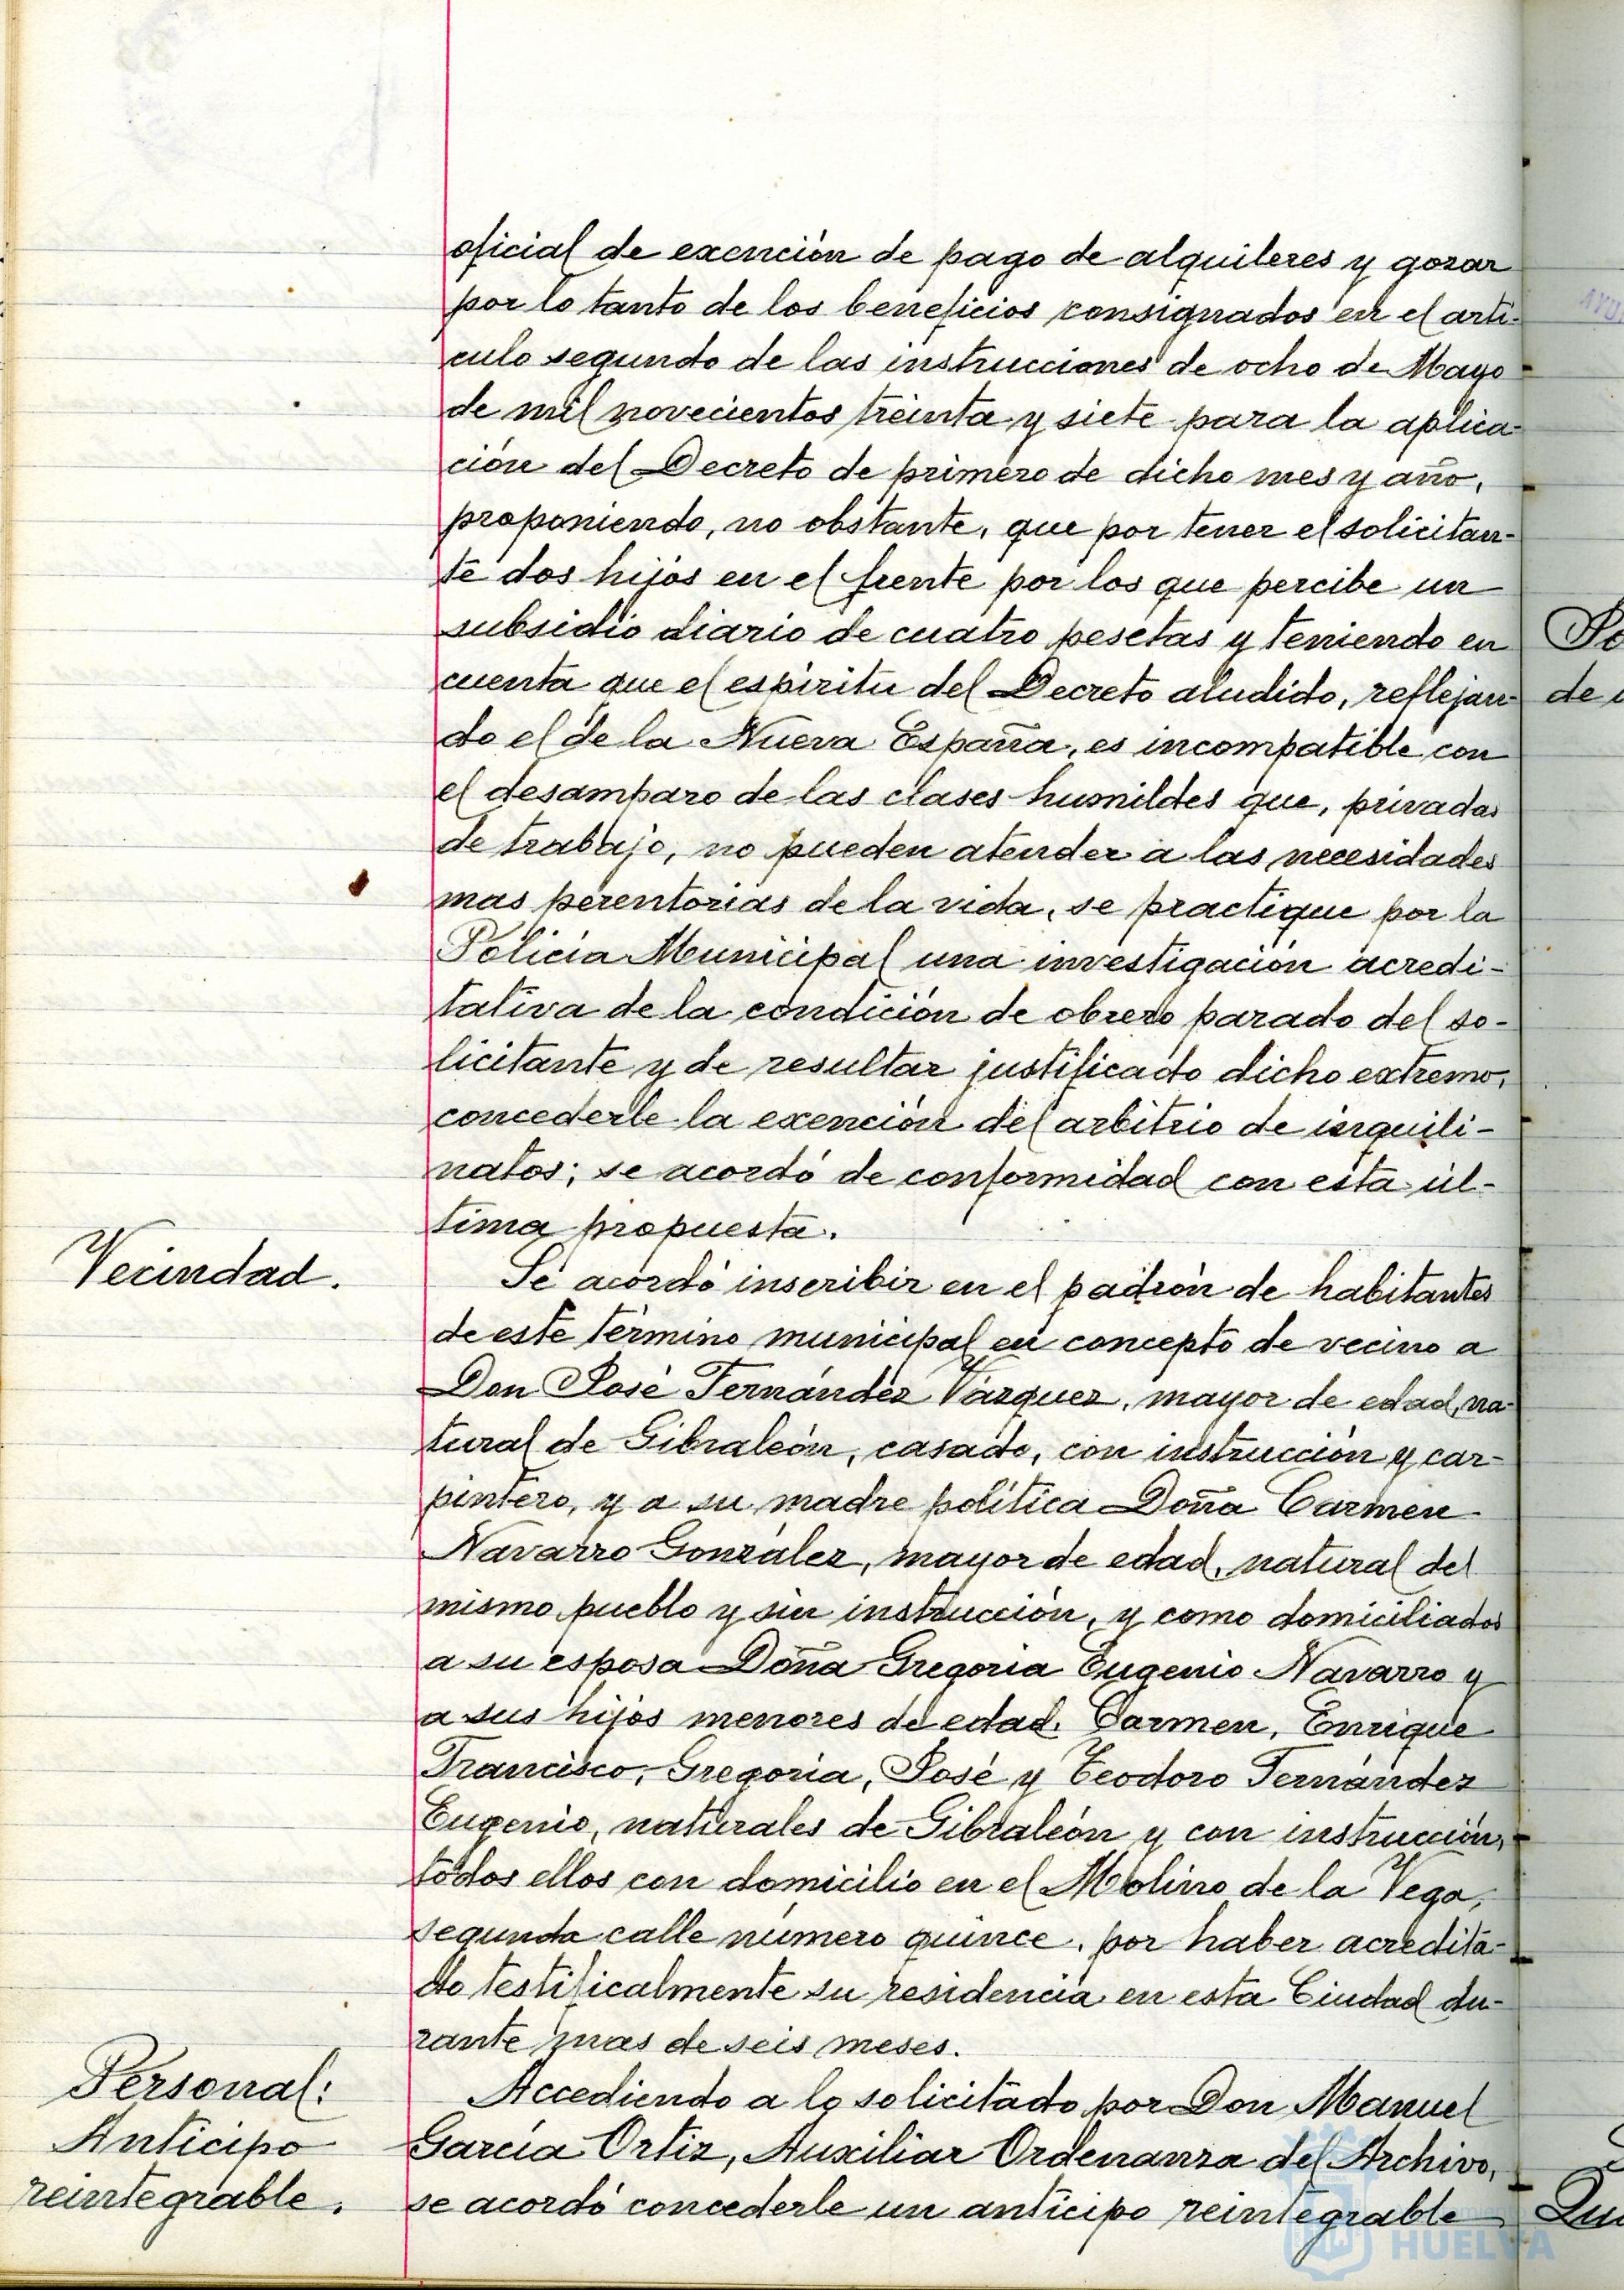 oficial de exención de pago de alquileres y gozar
por lo tanto de los beneficios consignados en el arti-
culo segundo de las instrucciones de ocho de Mayo
de mil novecientos treinta y siete para la aplica-
ción del Decreto de primero de dicho mes y año,
proponiendo, no obstante, que por tener el solicitan-
te dos hijos en el frente por los que percibe un
subsidio diario de cuatro pesetas y teniendo en
cuenta que el espíritu del Decreto aludido, reflejan-
do el de la Nueva España, es incompatible con
el desamparo de las clases humildes que, privadas
de trabajo, no pueden atender a las necesidades
mas perentorias de la vida, se practique por la
Policía Municipal una investigación acredi-
tativa de la condición de obrero parado del so-
licitante y de resultar justificado dicho extremo,
concederle la exención del arbitrio de inquili-
natos; se acordó de conformidad con esta úl-
tima propuesta.
Vecindad.
Se acordó inscribir en el padrón de habitantes
de este término municipal en concepto de vecino a
Don José Fernández Vázquez, mayor de edad, na-
tural de Gibraleón, casado, con instrucción y car-
pintero, y a su madre política Doña Carmen
Navarro González, mayor de edad, natural del
mismo pueblo y sin instrucción, y como domiciliados
a su esposa Doña Gregoria Eugenio Navarro y
a sus hijos menores de edad. Carmen, Enrique
Francisco, Gregoria, José y Teodoro Fernández
Eugenio, naturales de Gibraleón y con instrucción,
todos ellos con domicilio en el Molino de la Vega,
segunda calle número quince, por haber acredita-
do testificalmente su residencia en esta Ciudad du-
rante mas de seis meses.
Personal:
Anticipo
reintegrable.
Accediendo a lo solicitado por Don Manuel
García Ortiz, Auxiliar Ordenanza del Archivo,
se acordó concederle un anticipo reintegrable
HUELVA